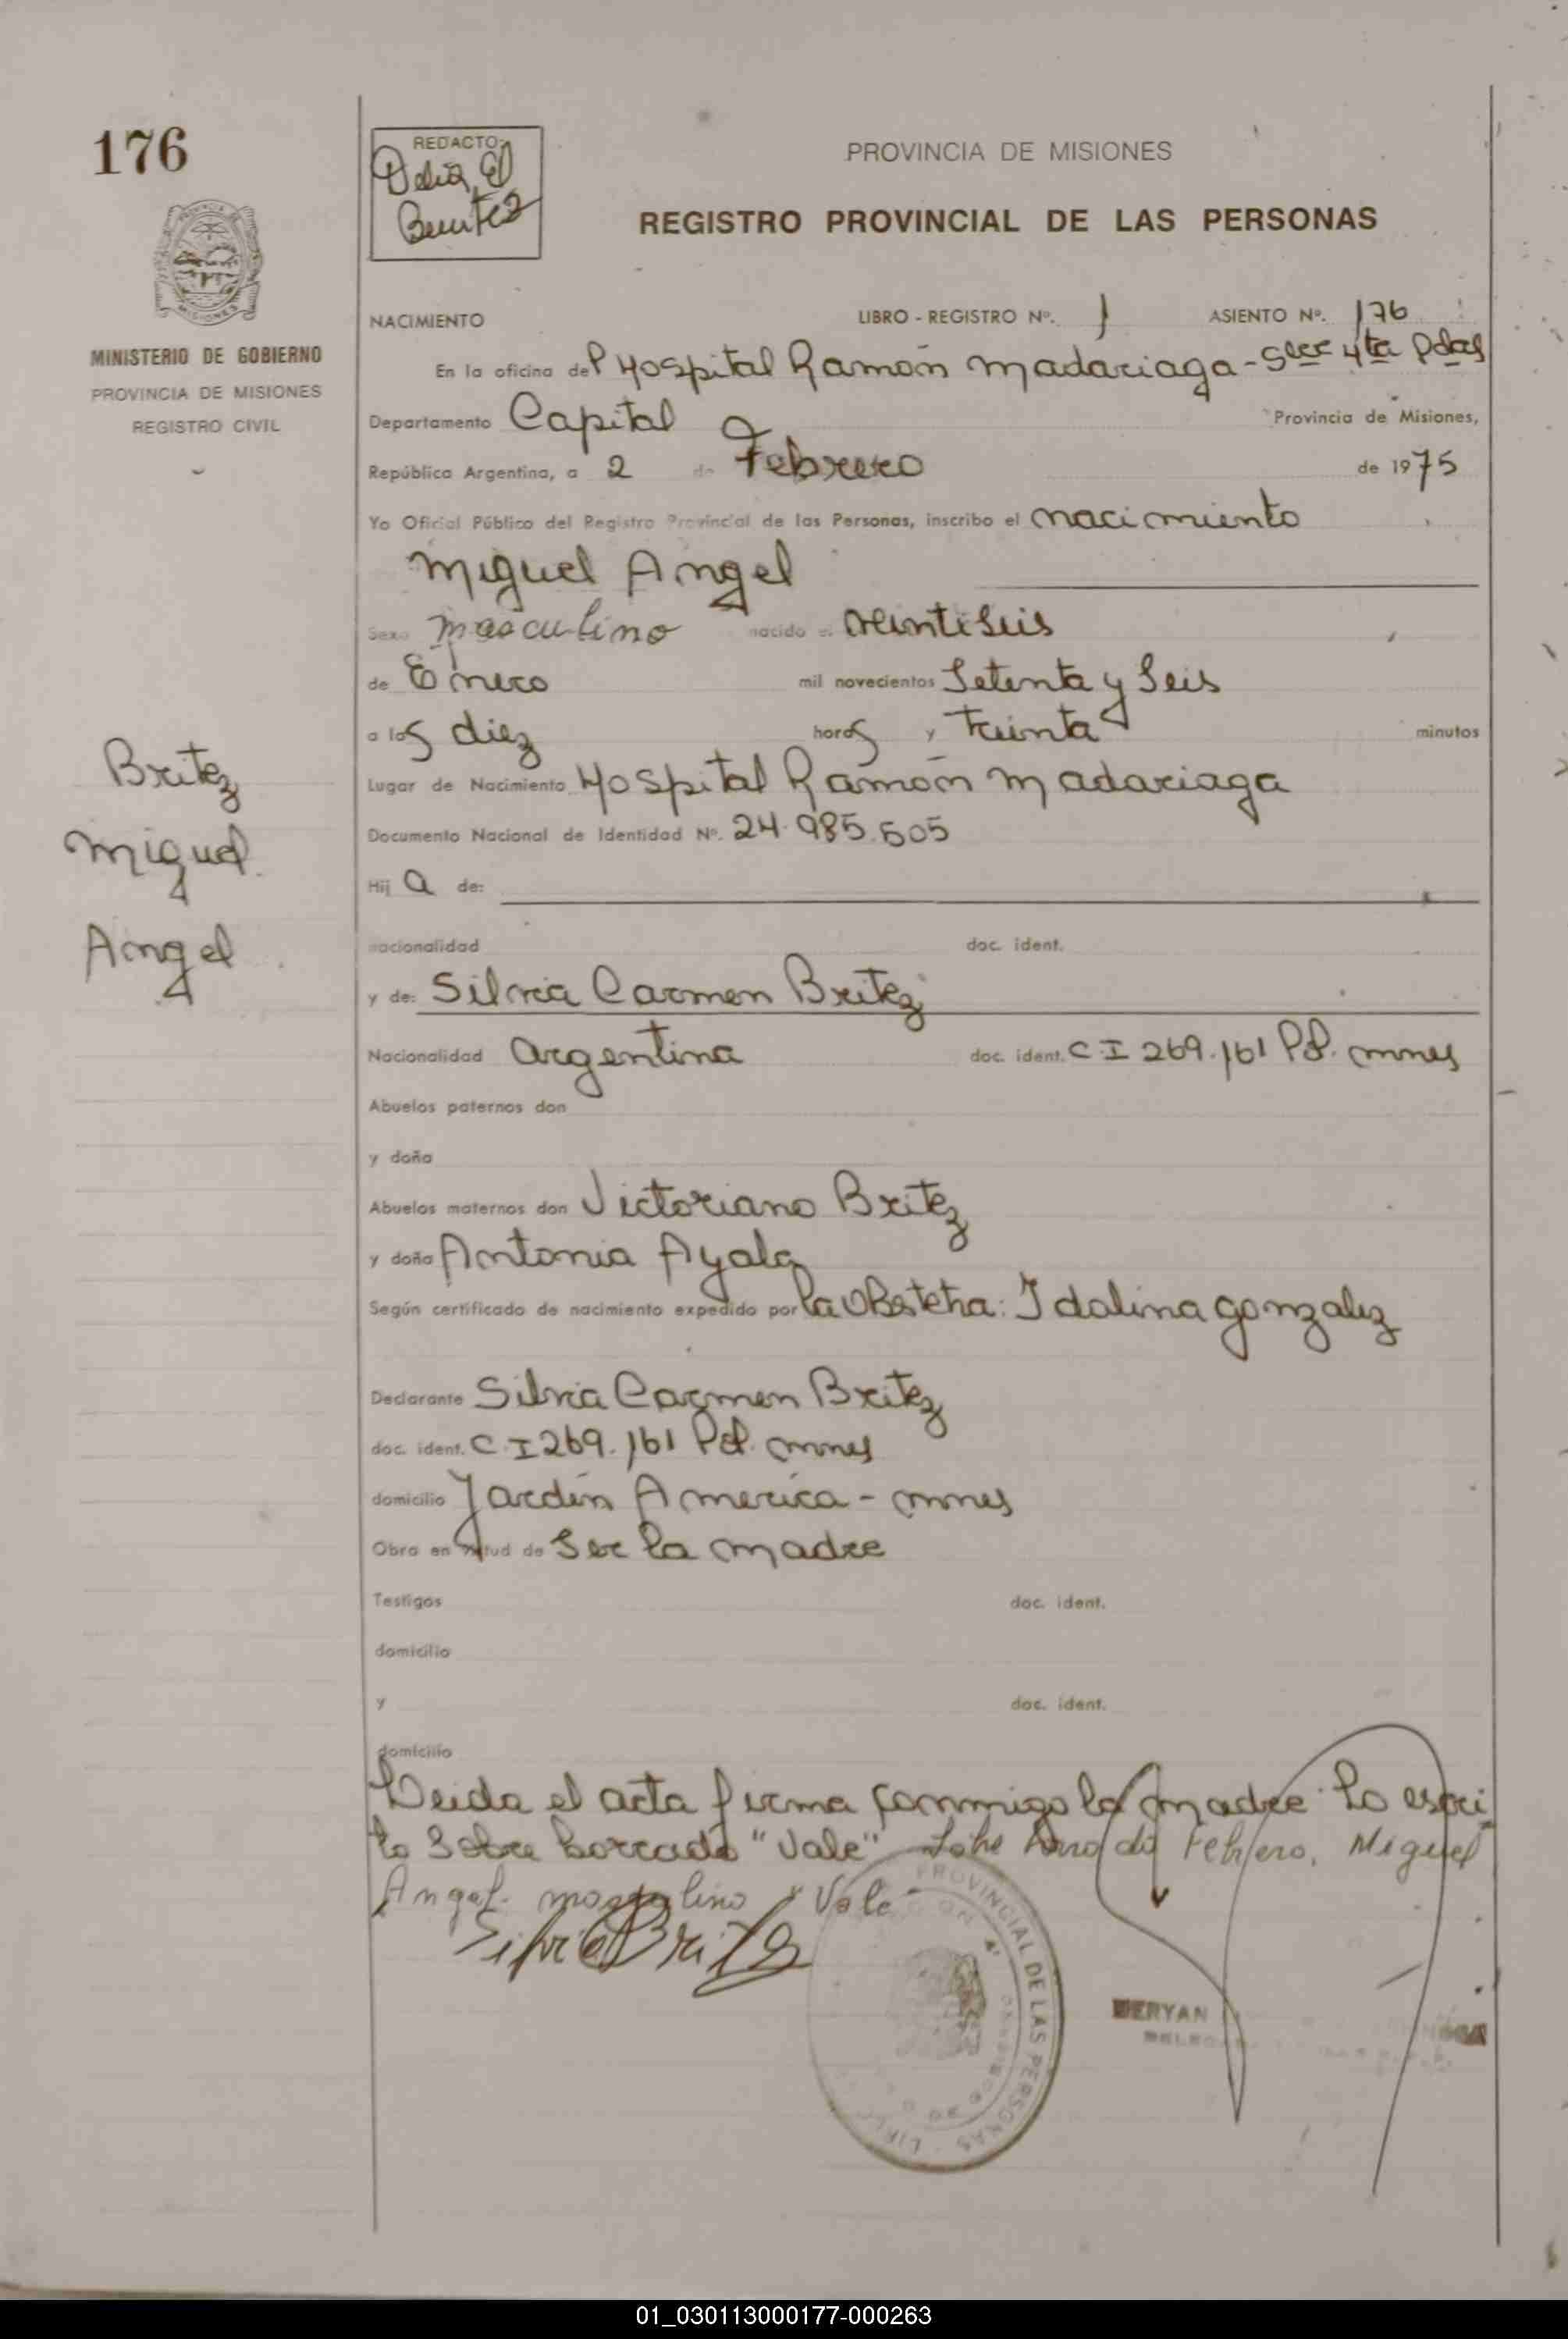 176
REDACTO:
Delia El
Benitez
PROVINCIA DE MISIONES
REGISTRO PROVINCIAL DE LAS PERSONAS
MISIONES
MINISTERIO DE GOBIERNO
PROVINCIA DE MISIONES
REGISTRO CIVIL
NACIMIENTO LIBRO - REGISTRO Nº. 1 ASIENTO Nº. 176
En la oficina del Hospital Ramón Madariaga - Secc 4ta Pdas
Departamento Capital Provincia de Misiones,
República Argentina, a 2 de Febrero de 1975
Yo Oficial Público del Registro Provincial de las Personas, inscribo el nacimiento
Miguel Angel
Sexo masculino nacido el veintiseis
de Enero mil novecientos Setenta y Seis
a las diez horas y treinta minutos
Lugar de Nacimiento Hospital Ramón Madariaga
Documento Nacional de Identidad Nº. 24.985.505
Hij a de:
nacionalidad doc. ident.
y de: Silvia Carmen Britez
Nacionalidad Argentina doc. ident. C.I 269.161 Pol. mnes
Abuelos paternos don
y doña
Abuelos maternos don Victoriano Britez
y doña Antonia Ayala
Según certificado de nacimiento expedido por la Obstetra: Idalina Gonzalez
Declarante Silvia Carmen Britez
doc. ident. C.I 269.161 Pol. mnes
domicilio Jardín America - mnes
Obra en virtud de Ser la madre
Testigos doc. ident.
domicilio
y doc. ident.
domicilio
Britez
Miguel
Angel
Leida el acta firma conmigo la madre Lo escri
to Sobre borrado "Vale" Febrero, Miguel
Angel. masculino "Vale"
Silvia Britez
PROVINCIAL DE LAS PERSONAS
01_030113000177-000263